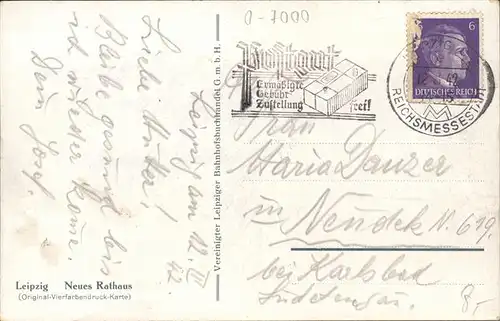 0-7000
Leipzig am 12. IV 42.
Liebe Mutter!
Bleibe gesund bis
ich wieder komme.
Dein Josef.
Vereinigter Leipziger Bahnhofsbuchhandel G. m. b. H.
Leipzig Neues Rathaus
(Original-Vierfarbendruck-Karte)
Postgut
Ermäßigte
Gebühr
Zustellung frei!
6
DEUTSCHES REICH
REICHSMESSESTADT
Frau
Maria Danzer
in Neudek N. 619.
bei Karlsbad
Sudetengau.
8,-